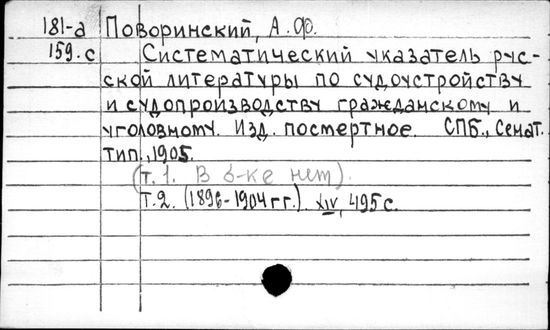 181-а Поворинский, А. Ф.
159.с Систематический указатель рус-
ской литературы по судоустройству
и судопроизводству гражданскому и
уголовному. Изд. посмертное. СПБ., Сенат.
тип., 1905.
(т. 1. В б-ке нет).
т. 2. (1896-1904 гг.). XIV, 495 с.